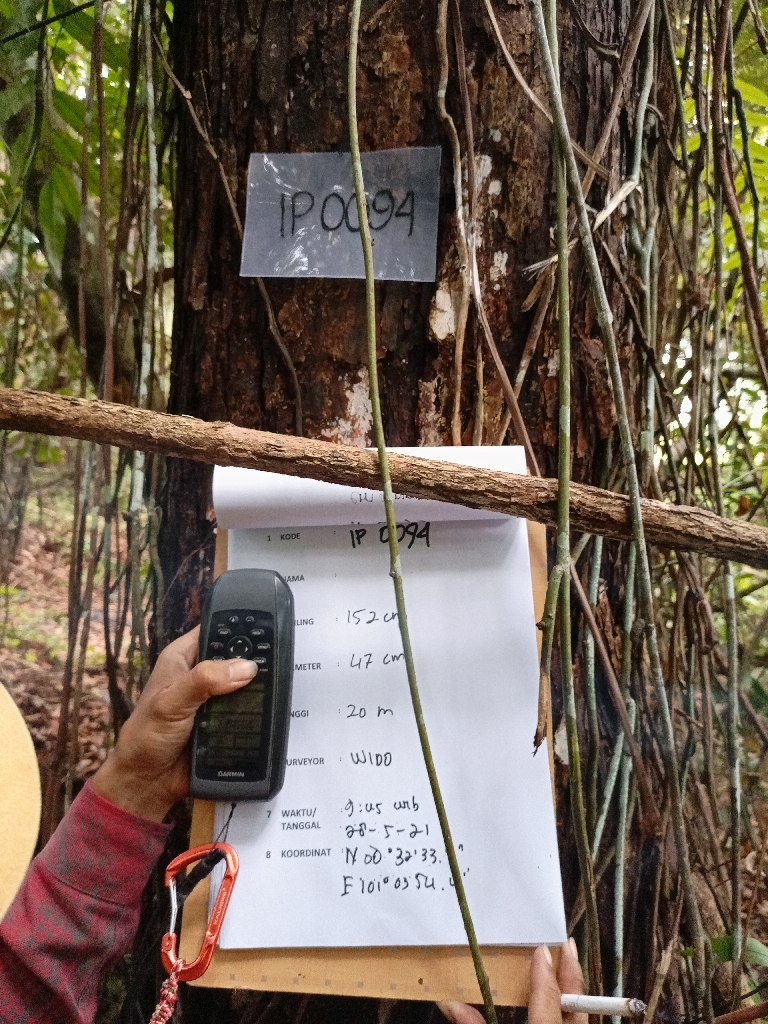 IP 0094
1 KODE : IP 0094
AMA :
ILING : 152 cm
METER : 47 cm
NGGI : 20 m
URVEYOR : WIDO
7 WAKTU/ : 9:45 wib
TANGGAL 28-5-21
8 KOORDINAT : N 00°32'33.
E 101°03'54.
GARMIN